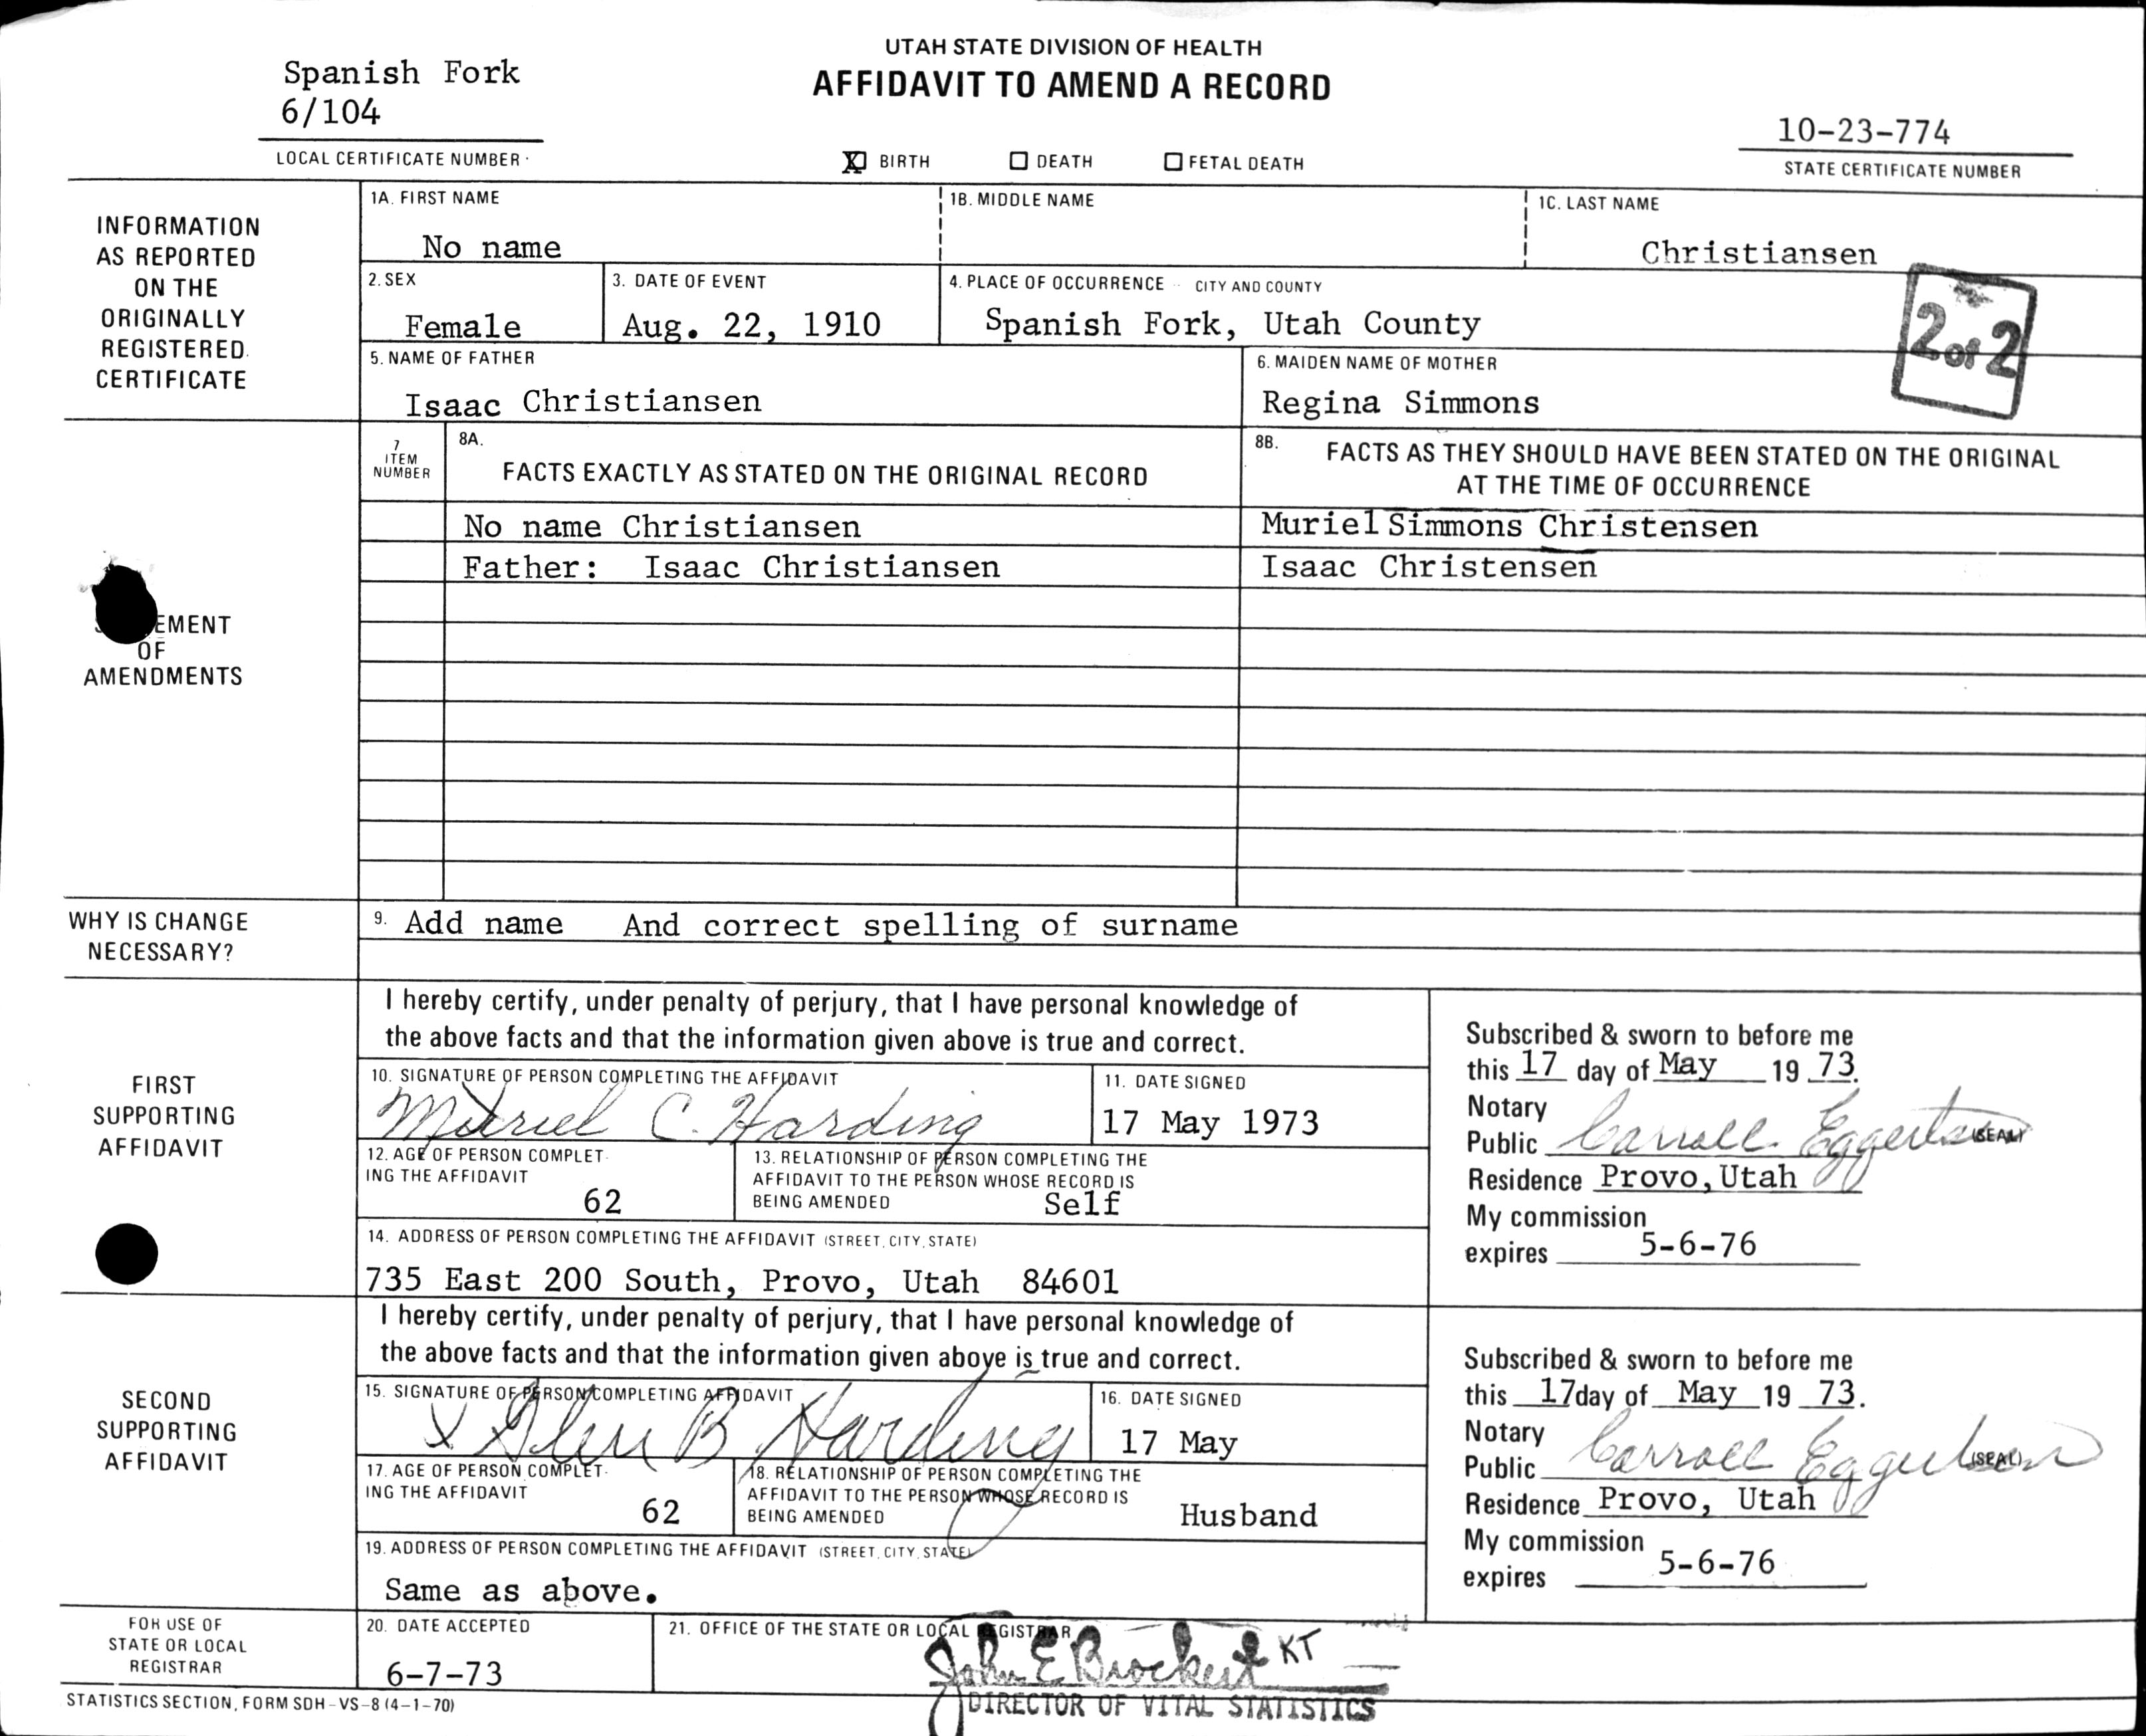 UTAH STATE DIVISION OF HEALTH
AFFIDAVIT TO AMEND A RECORD
Spanish Fork
6/104
LOCAL CERTIFICATE NUMBER
X BIRTH DEATH FETAL DEATH
10-23-774
STATE CERTIFICATE NUMBER
INFORMATION
AS REPORTED
ON THE
ORIGINALLY
REGISTERED
CERTIFICATE
1A. FIRST NAME 1B. MIDDLE NAME 1C. LAST NAME
No name Christiansen
2. SEX 3. DATE OF EVENT 4. PLACE OF OCCURRENCE CITY AND COUNTY
Female Aug. 22, 1910 Spanish Fork, Utah County
2 of 2
5. NAME OF FATHER 6. MAIDEN NAME OF MOTHER
Isaac Christiansen Regina Simmons
EMENT
OF
AMENDMENTS
7
ITEM
NUMBER
8A.
FACTS EXACTLY AS STATED ON THE ORIGINAL RECORD
8B. FACTS AS THEY SHOULD HAVE BEEN STATED ON THE ORIGINAL
AT THE TIME OF OCCURRENCE
No name Christiansen Muriel Simmons Christensen
Father: Isaac Christiansen Isaac Christensen
WHY IS CHANGE
NECESSARY?
9. Add name And correct spelling of surname
FIRST
SUPPORTING
AFFIDAVIT
I hereby certify, under penalty of perjury, that I have personal knowledge of
the above facts and that the information given above is true and correct.
10. SIGNATURE OF PERSON COMPLETING THE AFFIDAVIT 11. DATE SIGNED
Muriel C. Harding 17 May 1973
12. AGE OF PERSON COMPLET-
ING THE AFFIDAVIT
62
13. RELATIONSHIP OF PERSON COMPLETING THE
AFFIDAVIT TO THE PERSON WHOSE RECORD IS
BEING AMENDED Self
14. ADDRESS OF PERSON COMPLETING THE AFFIDAVIT (STREET, CITY, STATE)
735 East 200 South, Provo, Utah 84601
Subscribed & sworn to before me
this 17 day of May 19 73.
Notary
Public Carroll Eggertsen (SEAL)
Residence Provo, Utah
My commission
expires 5-6-76
SECOND
SUPPORTING
AFFIDAVIT
I hereby certify, under penalty of perjury, that I have personal knowledge of
the above facts and that the information given above is true and correct.
15. SIGNATURE OF PERSON COMPLETING AFFIDAVIT 16. DATE SIGNED
X Glen B Harding 17 May
17. AGE OF PERSON COMPLET-
ING THE AFFIDAVIT
62
18. RELATIONSHIP OF PERSON COMPLETING THE
AFFIDAVIT TO THE PERSON WHOSE RECORD IS
BEING AMENDED Husband
19. ADDRESS OF PERSON COMPLETING THE AFFIDAVIT (STREET, CITY, STATE)
Same as above.
Subscribed & sworn to before me
this 17 day of May 19 73.
Notary
Public Carroll Eggertsen (SEAL)
Residence Provo, Utah
My commission
expires 5-6-76
FOR USE OF
STATE OR LOCAL
REGISTRAR
20. DATE ACCEPTED 21. OFFICE OF THE STATE OR LOCAL REGISTRAR
6-7-73 John E Brockert KT
DIRECTOR OF VITAL STATISTICS
STATISTICS SECTION, FORM SDH-VS-8 (4-1-70)